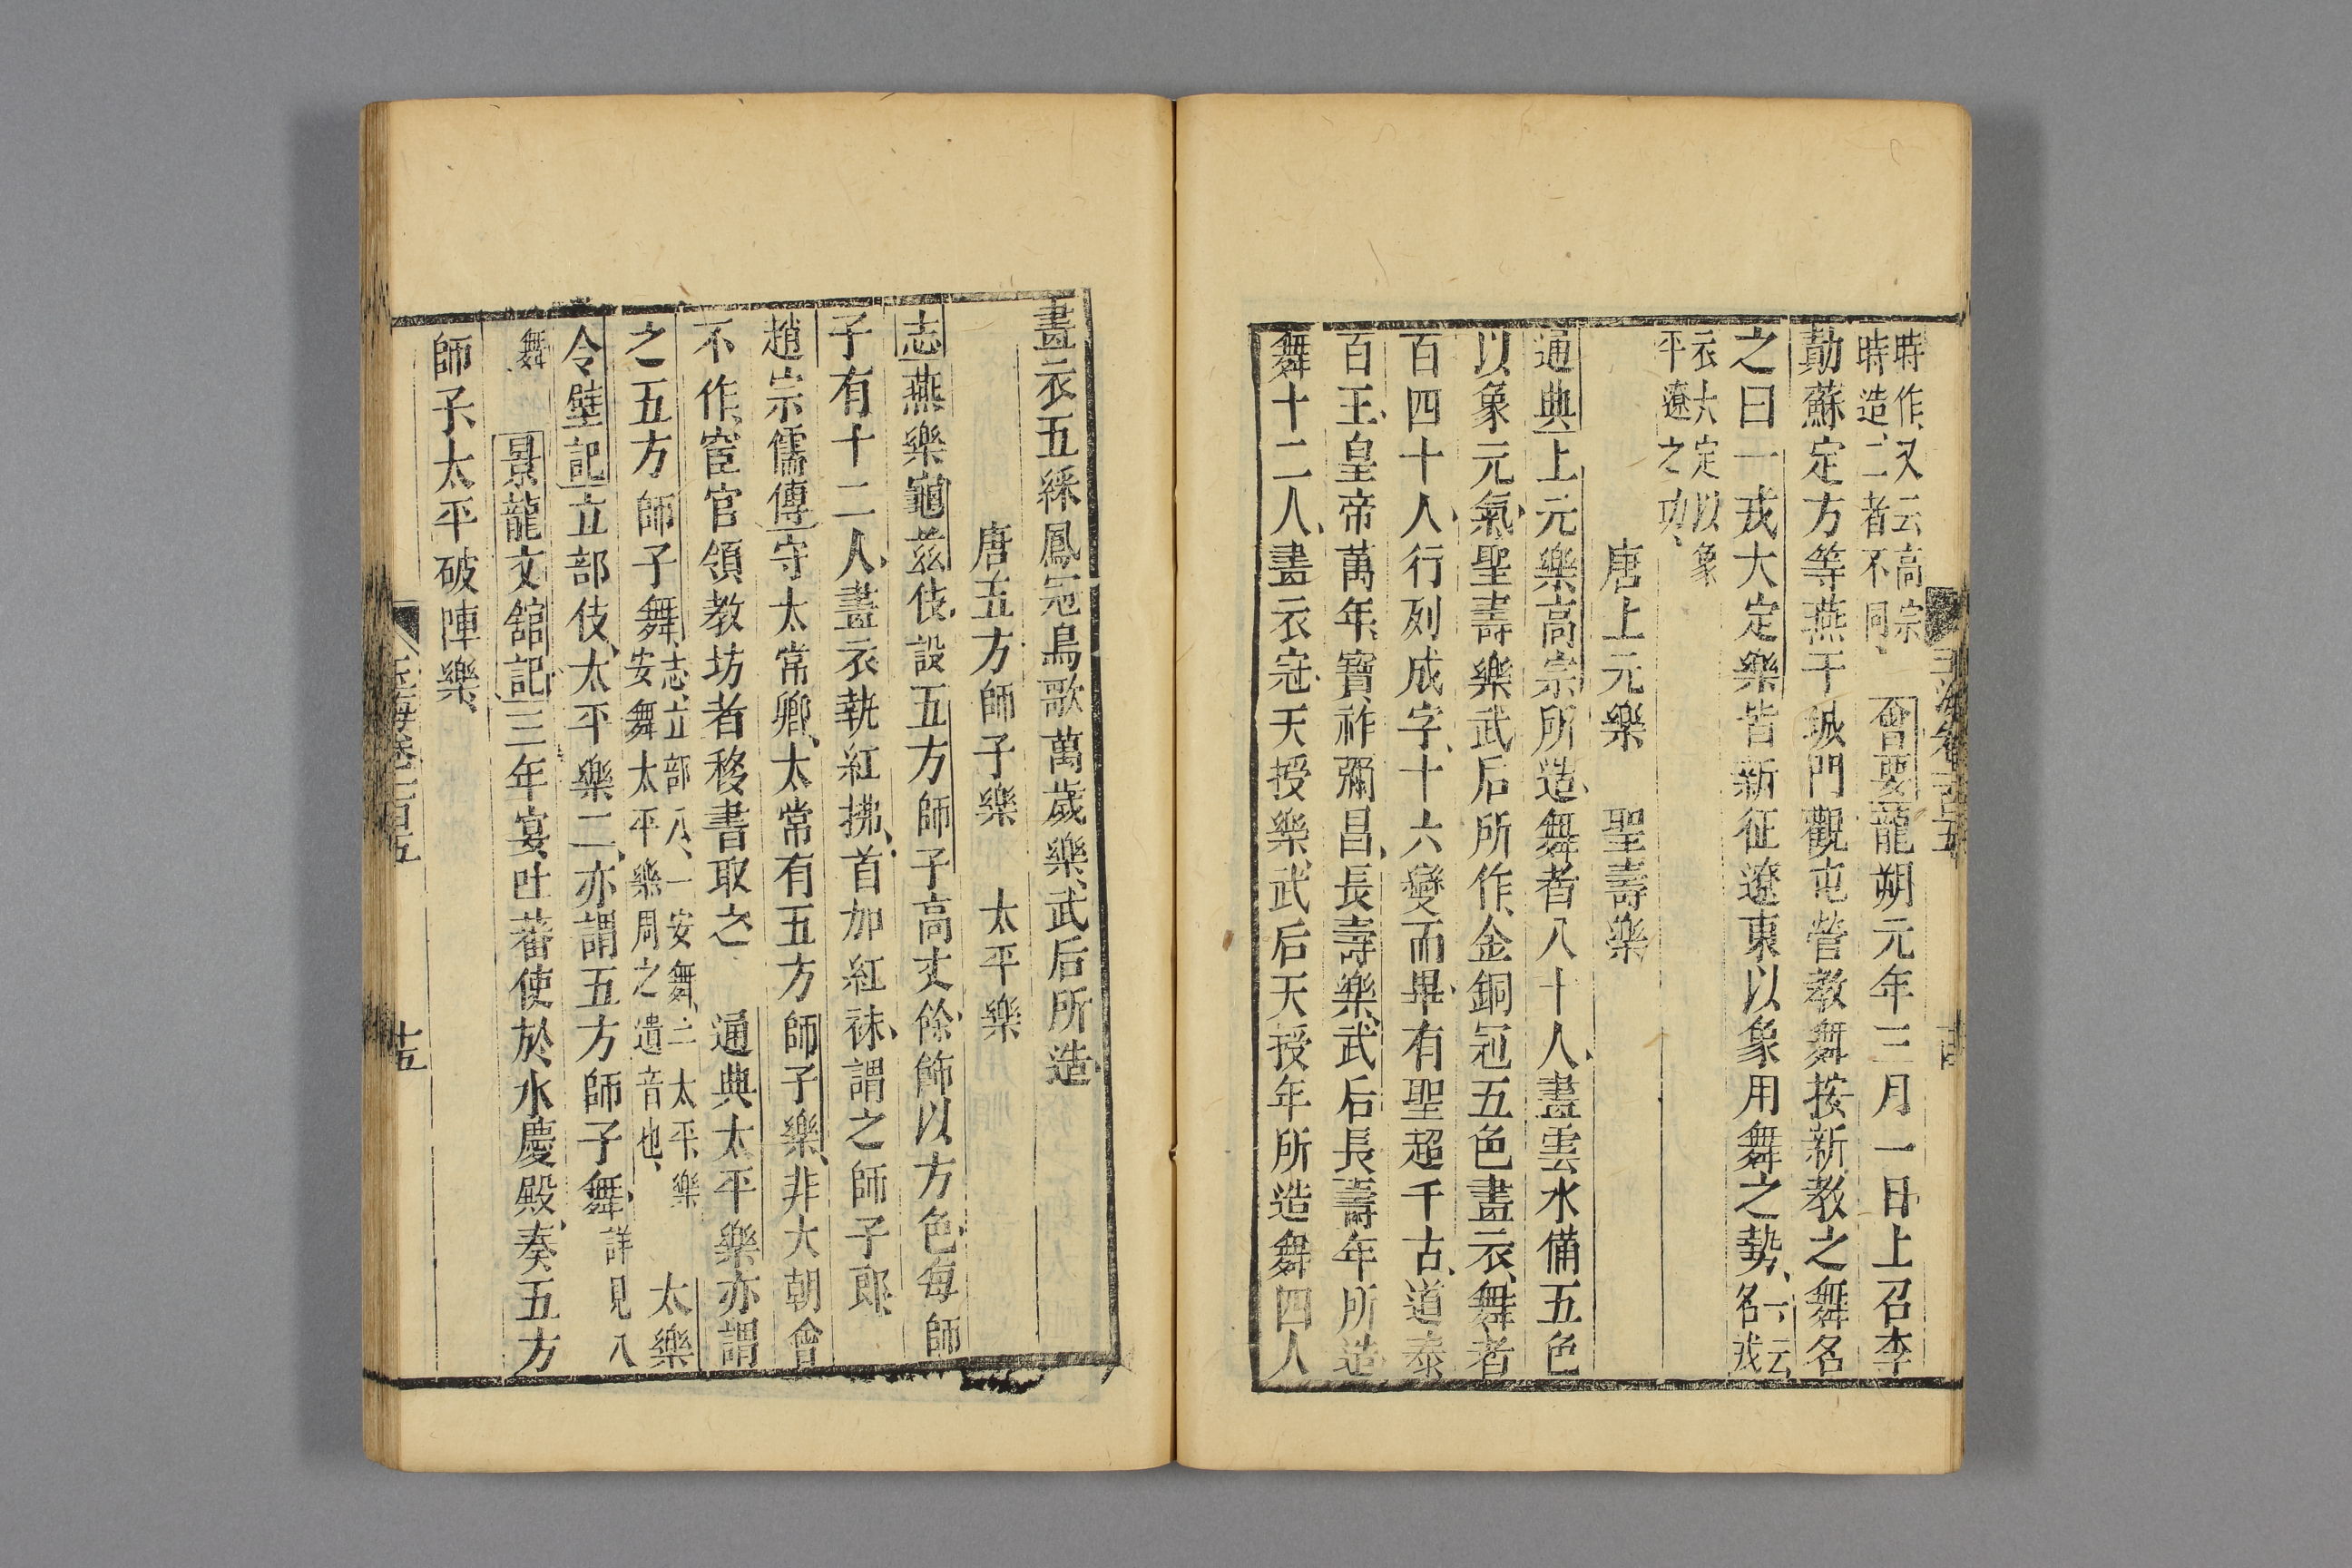 時作又云高宗
時造二者不同
會要龍朔元年三月一日上召李
勣蘇定方等燕于城門觀屯營教舞按新教之舞名
之曰一戎大定樂皆新征遼東以象用舞之勢
一云
名戎
衣大定以象
平遼之功
唐上元樂 聖壽樂
通典上元樂高宗所造舞者八十人畫雲水備五色
以象元氣聖壽樂武后所作金銅冠五色畫衣舞者
百四十人行列成字十六變而畢有聖超千古道泰
百王皇帝萬年寶祚彌昌長壽樂武后長壽年所造
舞十二人畫衣冠天授樂武后天授年所造舞四人
畫衣五綵鳳冠鳥歌萬歲樂武后所造
唐五方師子樂 太平樂
志燕樂龜茲伎設五方師子高丈餘飾以方色每師
子有十二人畫衣執紅拂首加紅袜謂之師子郎
趙宗儒傳守太常卿太常有五方師子樂非大朝會
不作宦官領教坊者移書取之 通典太平樂亦謂
之五方師子舞
志立部八一安舞二太平樂
安舞太平樂周之遺音也
太樂
令壁記立部伎太平樂二亦謂五方師子舞
詳見八
舞
景龍文館記三年宴吐蕃使於水慶殿奏五方
師子太平破陣樂
玉海卷一百五
十五